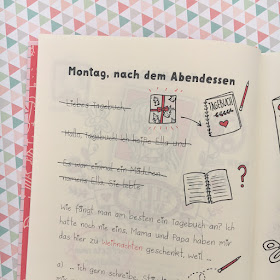 Montag, nach dem Abendessen
Liebes Tagebuch,
TAGEBUCH
Hallo Tagebuch, ich heiße Ella und
Es war einmal ein Mädchen,
Wie fängt man am besten ein Tagebuch an? Ich
hatte noch nie eins. Mama und Papa haben mir
das hier zu Weihnachten geschenkt, weil ...
a) ... ich gern schreibe.